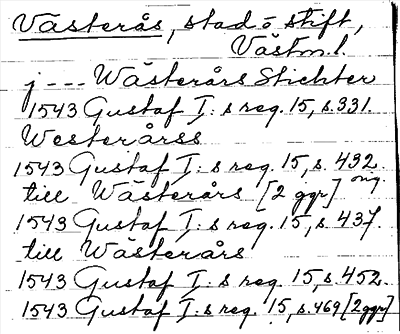 Västerås, stad o stift,
Västm.l.
j --- Wästerårs Stichter
1543 Gustaf I:s reg. 15, s. 331.
Westerårss
1543 Gustaf I:s reg. 15, s. 432.
till Wästerårs [2 ggr] ong.
1543 Gustaf I:s reg. 15, s. 437.
till Wästerårs
1543 Gustaf I:s reg. 15, s. 452.
1543 Gustaf I:s reg. 15, s. 469 [2 ggr]